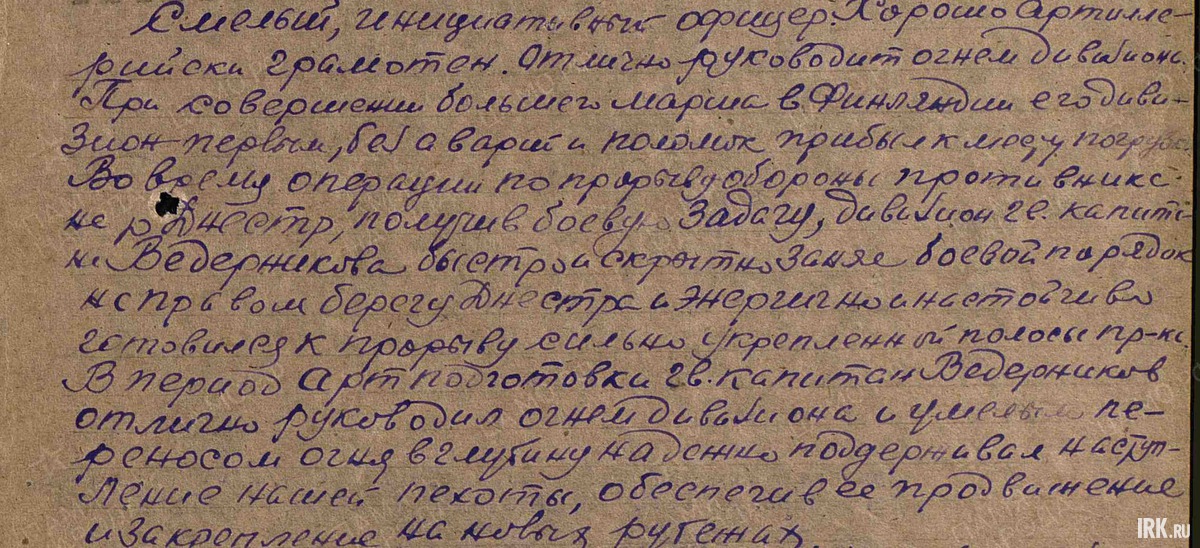 Смелый, инициативный офицер. Хорошо Артилле-
рийски грамотен. Отлично руководит огнем дивизиона.
При совершении большего марша в Финляндии его диви-
зион первым, без аварий и поломок прибыл к месту погрузки
Во время операции по прорыву обороны противника
на р. Днестр, получив боевую задачу, дивизион гв. капита-
на Ведерникова быстро и скрытно занял боевой порядок
на правом берегу Днестра и энергично и настойчиво
готовился к прорыву сильно укрепленный полосы пр-ка
В период артподготовки гв. капитан Ведерников
отлично руководил огнем дивизиона и умелым пе-
реносом огня в глубину надежно поддерживал наступ-
ление нашей пехоты, обеспечив ее продвижение
и закрепление на новых рубежах
IRK.RU